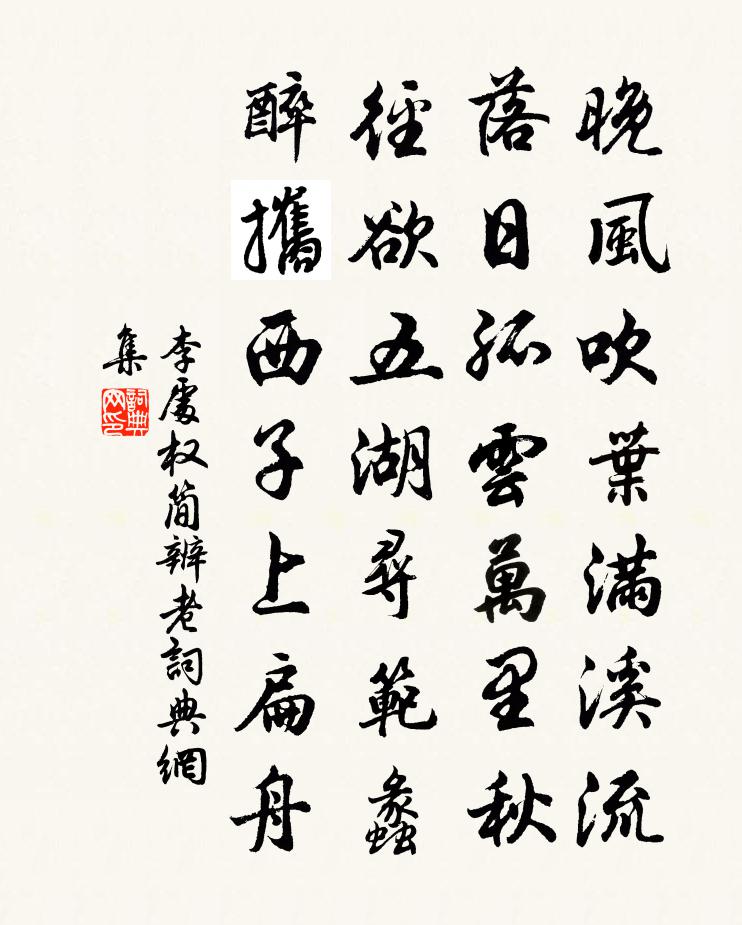 晚風吹葉滿溪流
落日孤雲萬里秋
徑欲五湖尋範蠡
醉攜西子上扁舟
李處权简辨老詞典網
集
詞典網印